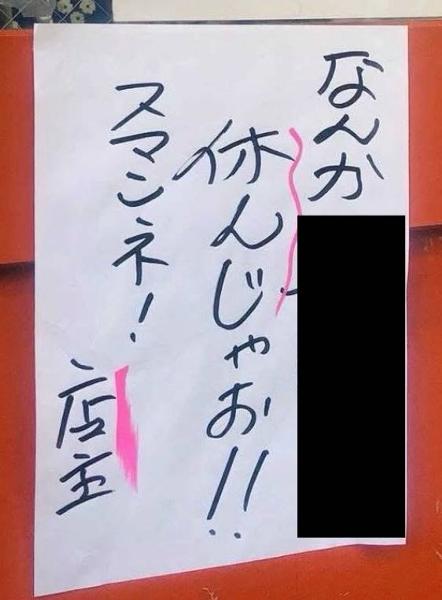 なんか
休んじゃお!!
スマンネ!
店主